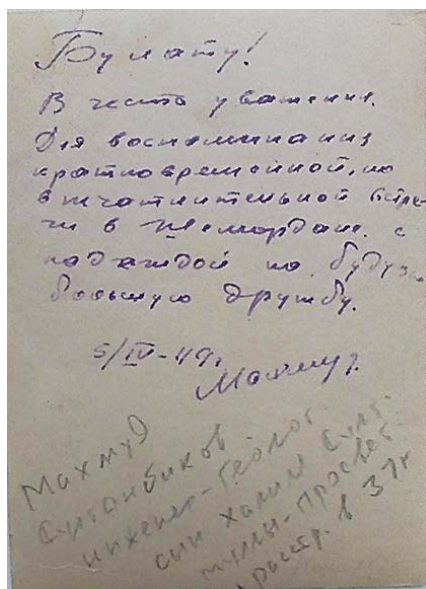 Булату!
В честь уважения.
Для воспоминания
кратковременной, но
впечатлительной встре-
чи в Шемордане с
надеждой на будущ.
большую дружбу.
5/IV-49г
Махмуд.
Махмуд
Султанбиков
инженер-геолог.
сын Халим Султ.
муллы-просвет.
расстр. в 37г